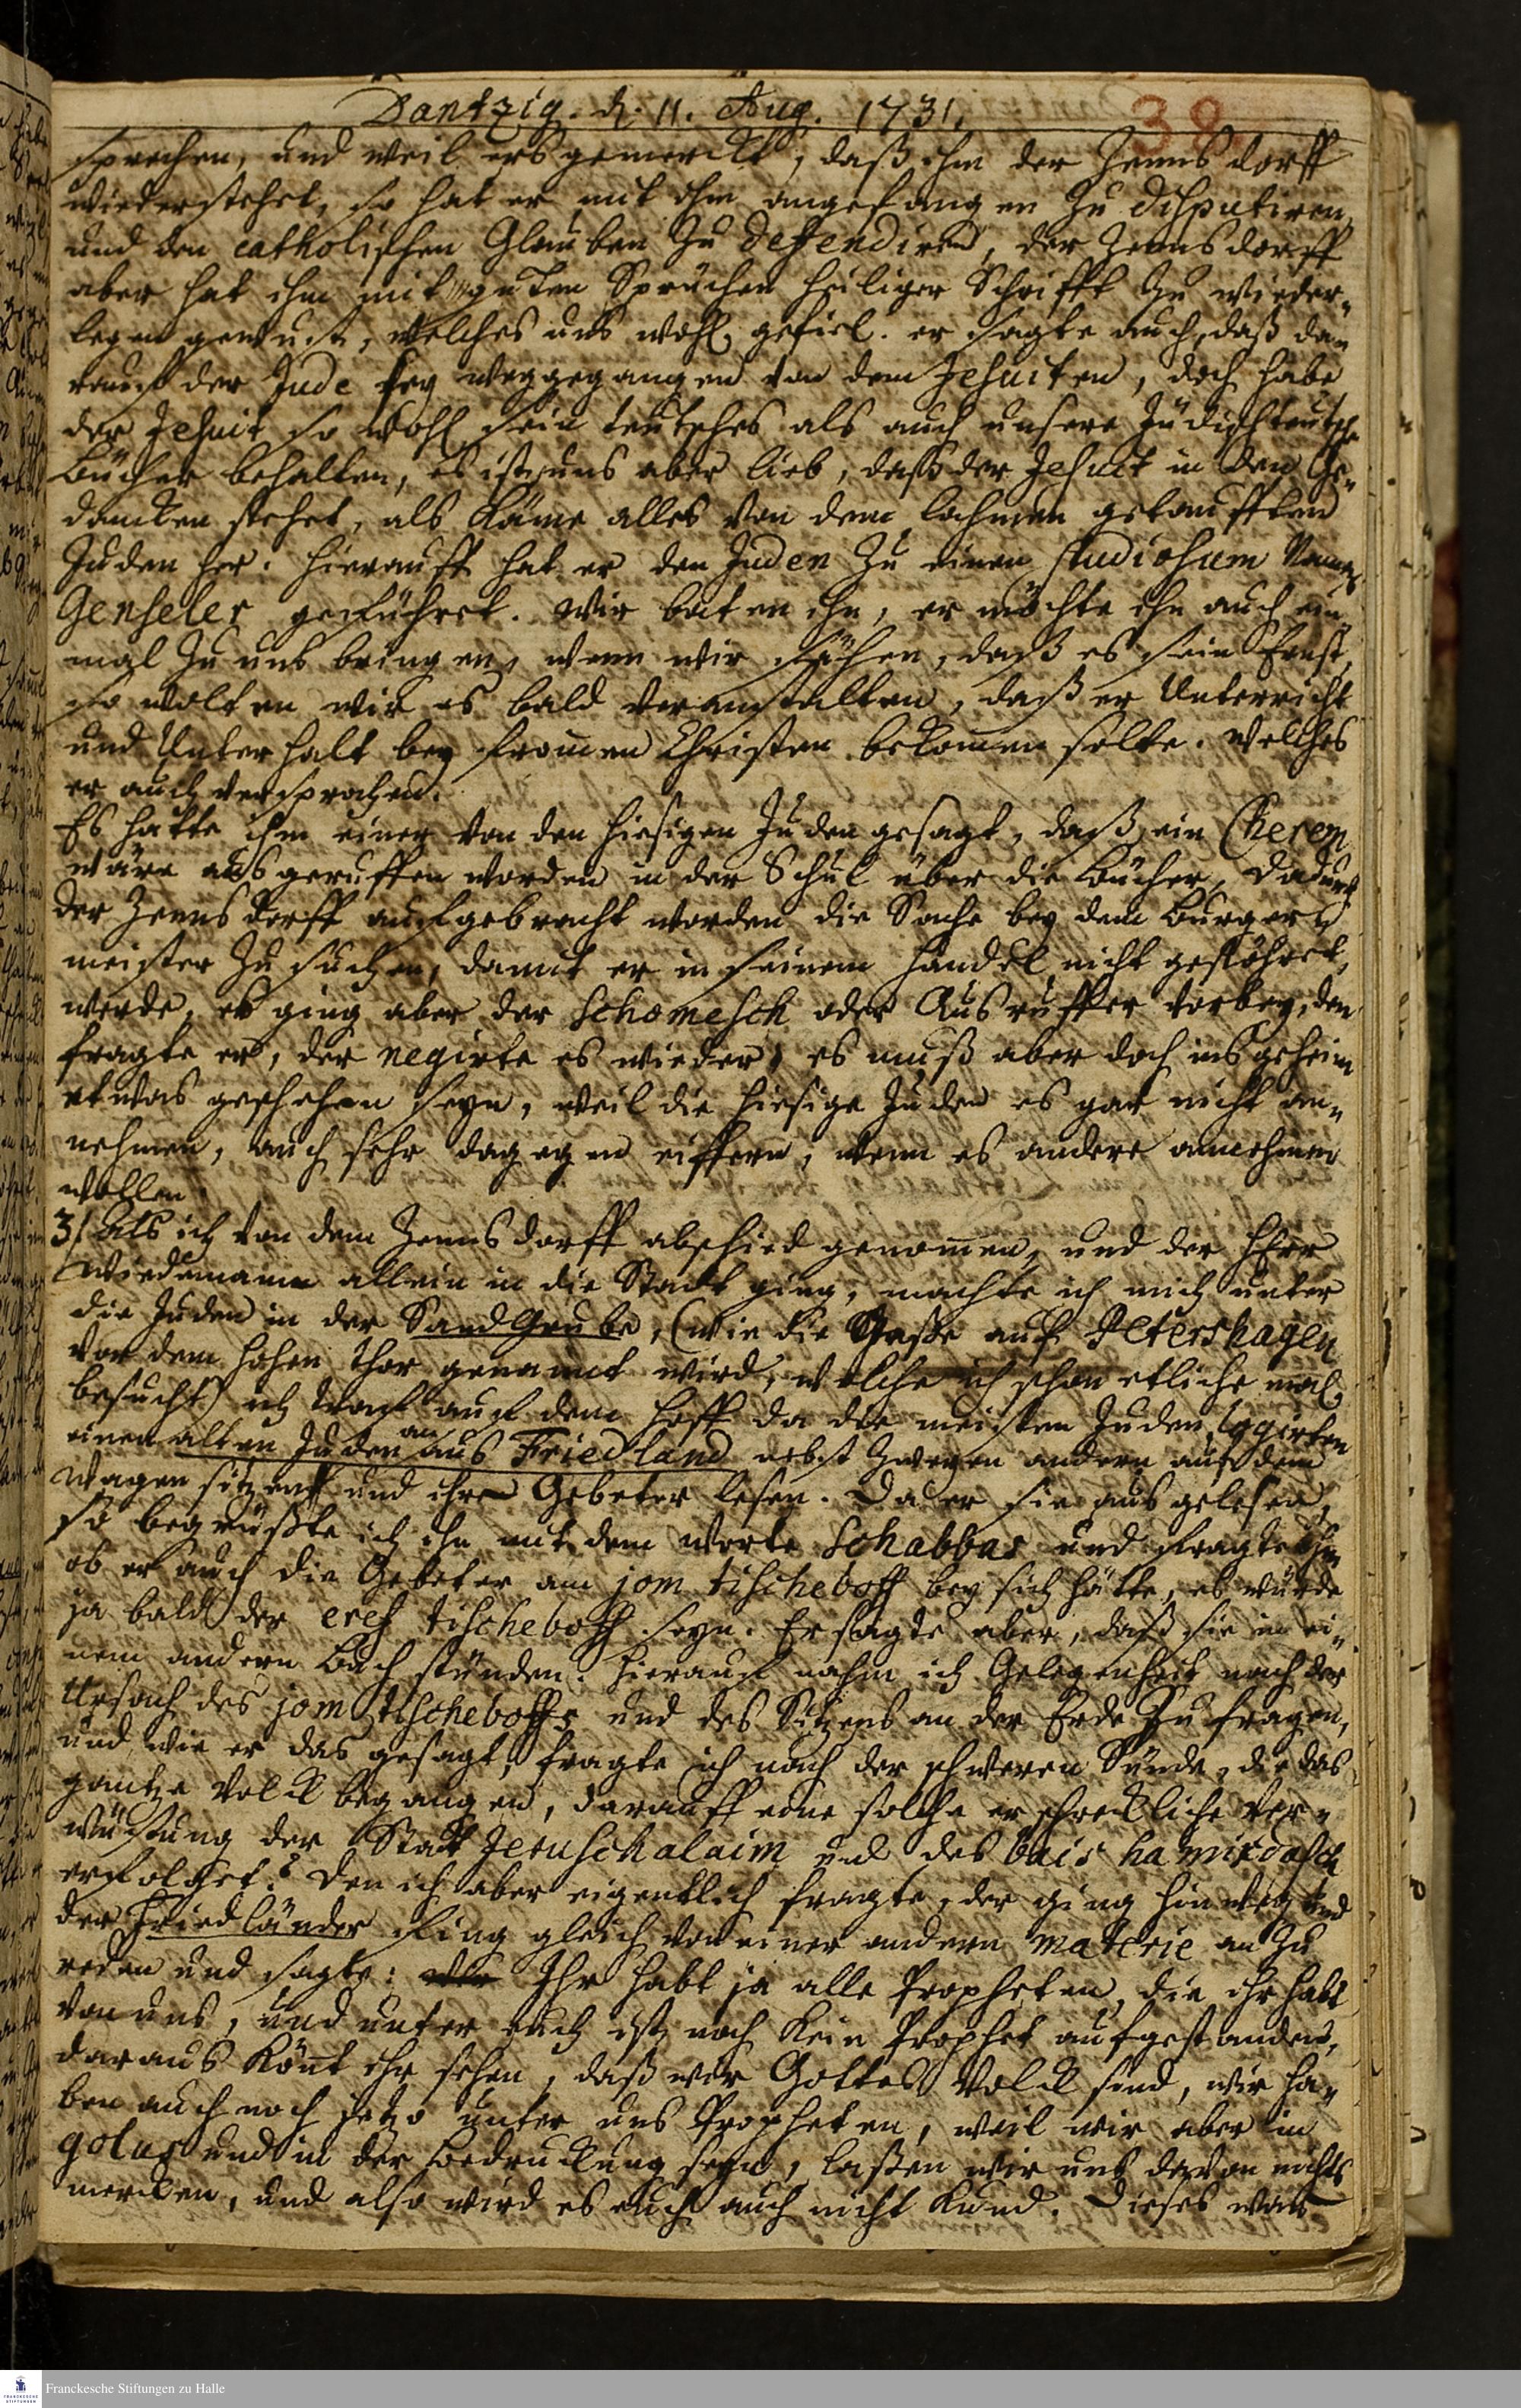 Dantzig. d. 11. Aug. 1731.
38
sprechen, und weil ers gemerckt, daß ihm der Zennsdorff
wiederstehet, so hat er mit ihm angefangen zu disputiren,
und den catholischen Glauben zu defendiren, der Zennsdorff
aber hat ihn mit guten Sprüchen heiliger Schrifft zu wieder„
legen gewust, welches uns wohl gefiel. er sagte auch, daß da„
rauf der Jude sey weggegangen von dem Jesuiten, doch habe
der Jesuit so wohl sein teutsches als auch unsere Jüdischteutsche
Bücher behalten, es ist uns aber lieb, daß der Jesuit in den Ge„
dancken stehet, als käme alles von dem lahmen getaufften
Juden her. Hierauff hat er den Juden zu einen studiosum Namens
Genseler geführet. Wir baten ihn, er möchte ihn auch ein„
mal zu uns bringen, wenn wir sähen, daß es sein Ernst,
so wolten wir es bald veranstalten, daß er Unterricht
und Unterhalt bey from̅en Christen bekom̅en solte. welches
er auch versprochen.
Es hatte ihm einer von den hiesigen Juden gesagt, daß ein Cherem
wäre ausgeruffen worden in der Schul über die Bücher, dadurch
der Zennsdorff aufgebracht worden die Sache bey dem Burger„
meister zu suchen, damit er in seinem Handel nicht gestöhret
werde, es ging aber der Schomesch oder Ausruffer vorbey, den
fragte er, der negirte es wieder, es muß aber doch insgeheim
etwas geschehen seyn, weil die hiesige Juden es gar nicht an„
nehmen, auch sehr dagegen eiffern, wenn es andere annehmen
wollen.
3/ Als ich von dem Zennsdorff abschied genom̅en, und der Herr
Wiedemann allein in die Stadt ging, machte ich mich unter
die Juden in der SandGrube, (wie die Straße auf Petershagen
vor dem hohen Thor genannt wird, welche ich schon etliche mal
besucht) ich traf auf dem Hoff da die meisten Juden logirten
einen alten Juden an aus Friedland nebst zweyen andern auf dem
Wagen sitzend und ihre Gebeter lesen. Da er sie ausgelesen,
so begrüßte ich ihn mit dem Worte Schabbas und fragte ihn
ob er auch die Gebeter am jom tischeboff bey sich hätte, es würde
ja bald der eref tischeboff seyn. Er sagte aber, daß sie in ei„
nem andern Buch stünden. Hierauf nahm ich Gelegenheit nach der
Ursach des jom tischeboffs und des Sitzens an der Erde zu fragen,
und wie er das gesagt, fragte ich nach der schweren Sünde, die das
gantze Volck begangen, darauff eine solche erschreckliche Ver„
wüstung der Stadt Jeruschalaim und des bais hamikdasch
erfolget? Den ich aber eigentlich fragte, der ging hinweg und
der Friedländer fing gleich von einer andern materie an zu
reden und sagte: Ihr habt ja alle Propheten, die ihr habt
von uns, und unter euch ist noch kein Prophet aufgestanden,
daraus kön̅t ihr sehen, daß wir Gottes Volck sind, wir ha„
ben auch noch jetzo unter uns Propheten, weil wir aber in
golus und in der Bedruckung seyn, laßen wir uns davon nichts
mercken, und also wird es euch auch nicht kund. Dieses war
Franckesche Stiftungen zu Halle